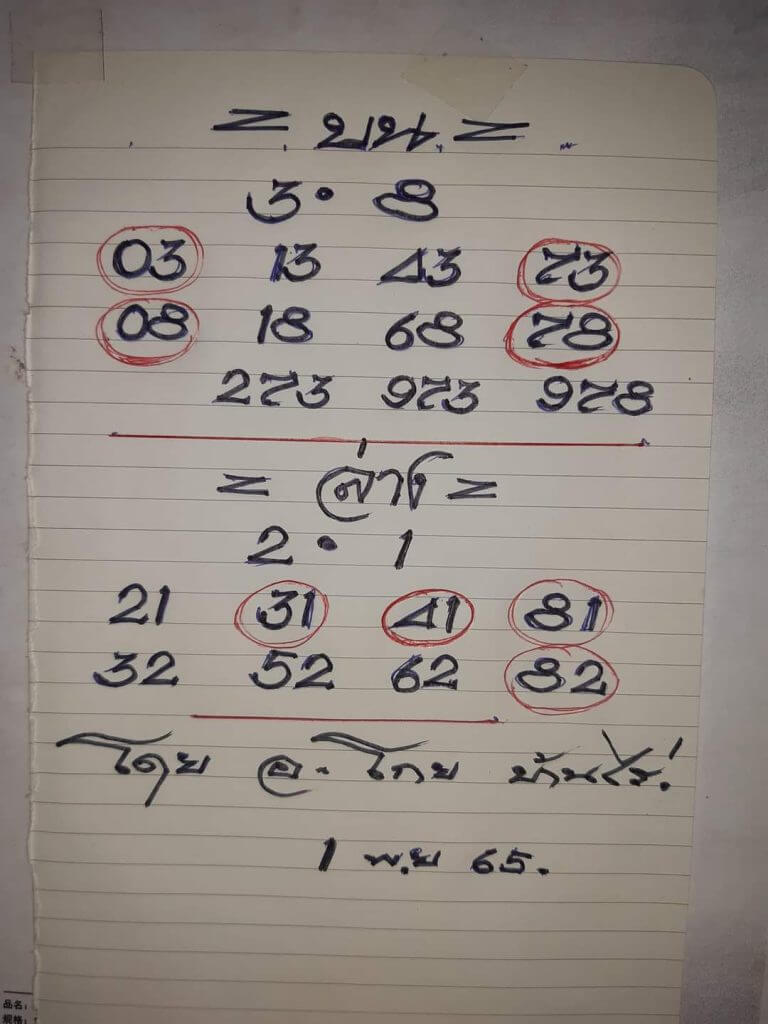 = บน =
3 • 8
03 13 43 73
08 18 68 78
273 973 978
= ล่าง =
2 • 1
21 31 41 81
32 52 62 82
โดย อ. โกย บ้านไร่.
1 พ.ย 65.
品名:
规格: